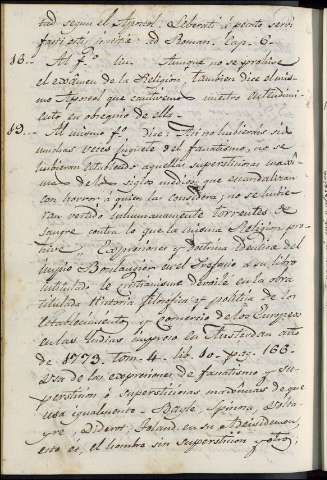 tad segun el Apostol: Liberati á peccto servi
facti estis justitie: ad Roman. Cap. 6.
18. Al fº lic. Aunque no se prohive
el exâmen de la Religion, tambien dice el mis-
mo Apostol que cautivemos nuestro entendimi-
ento en obsequio de ella.
19. Al mismo fº dice: Asi no hubieran sido
muchas veces juguete del fanatismo, no se
hubieran establecido aquellas supersticiosas maxi-
mas de los siglos medios, que escandalizan
con horror á quien las considera; no se hubie-
ran vertido inhumanamente torrentes de
sangre contra lo que la misma Religion pre-
viene,, Expresiones y doctrina identica del
impio Boulanger en el Prefacio a su libro
intitulado le cristianisme devoilé en la obra
titulada Historia filosofica y politica de los
establecimientos, y Comercio de los Europeos
en las Indias impreso en Amsterdan año
de 1773. tom. 4. lib. 10. pag. 166.
Usa de las expresiones de fanatismo y su-
persticion ó supersticiosas maximas de que
usa igualmente Bayle, Spinosa, Volta-
yre, Diderot, Toland en su Adeisidemon,
esto es, el hombre sin supersticion y otros;